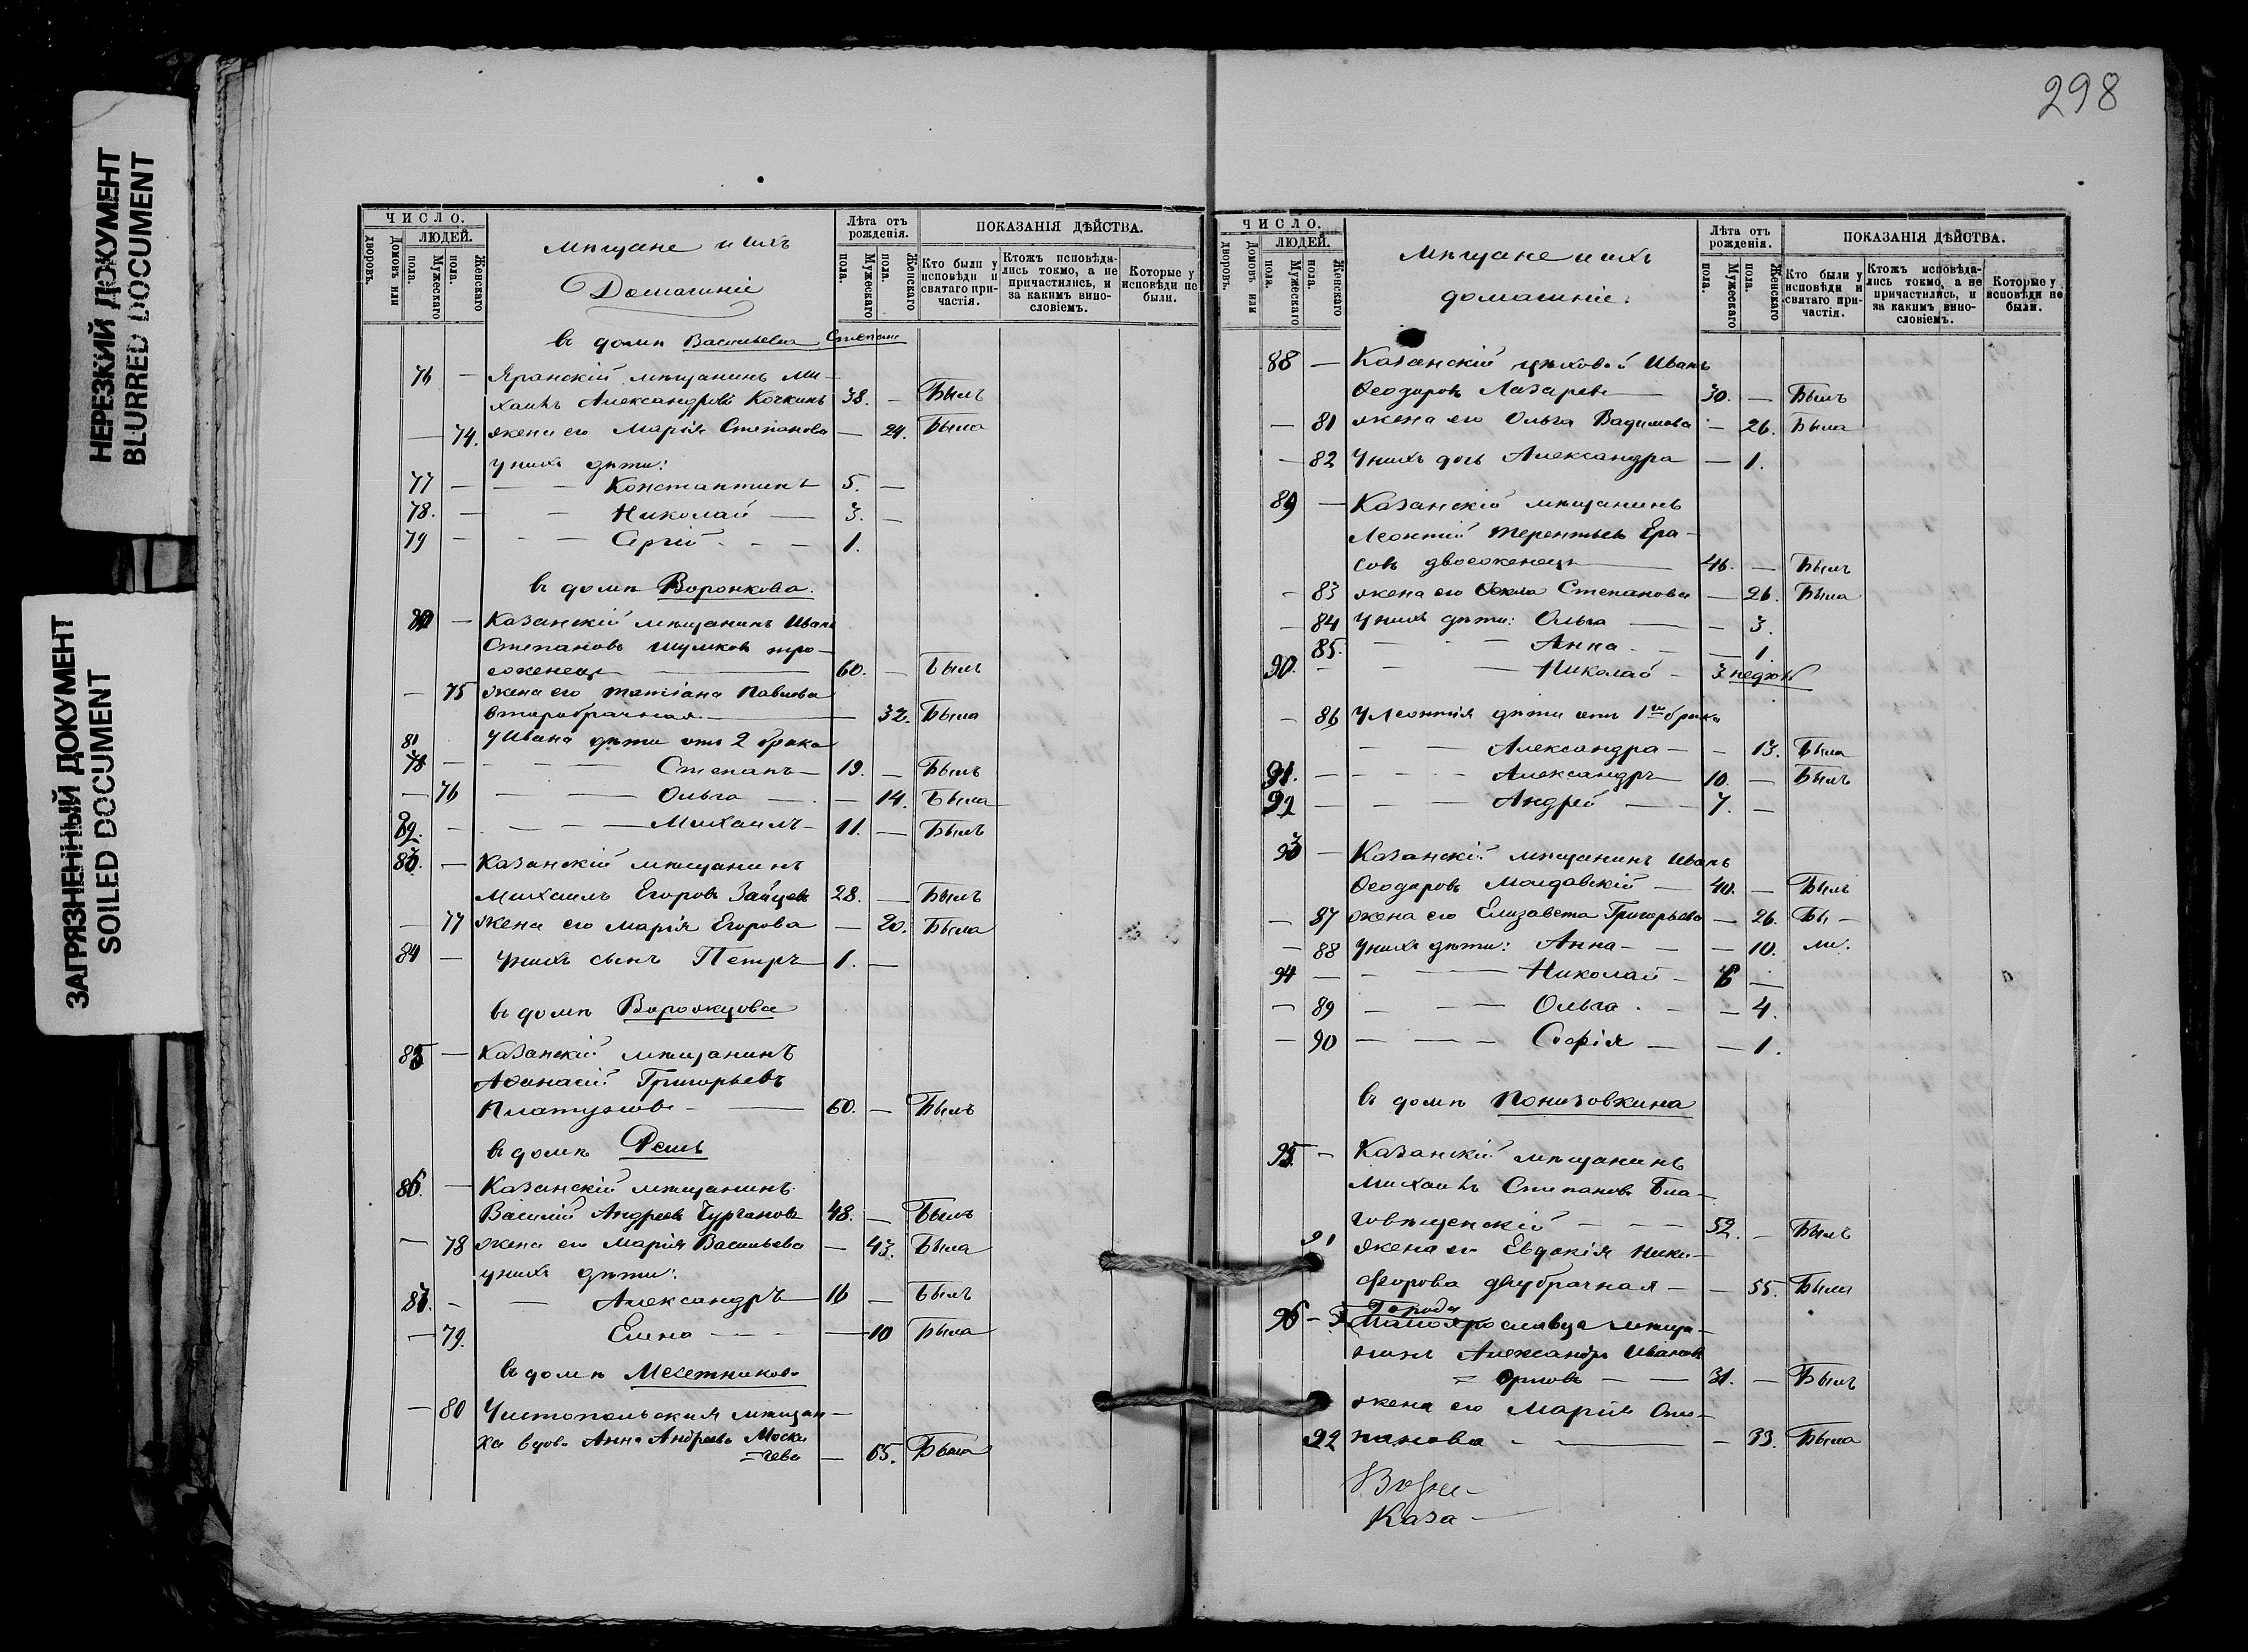 НЕРЕЗКИЙ ДОКУМЕНТ
BLURRED DOCUMENT
ЗАГРЯЗНЕННЫЙ ДОКУМЕНТ
SOILED DOCUMENT
ЧИСЛО.
ЛЮДЕЙ.
Домовъ или дворовъ.
Мужескаго пола.
Женскаго пола.
Мѣщане и ихъ
Домашніе
Лѣта отъ рожденія.
Мужескаго пола.
Женскаго пола.
ПОКАЗАНІЯ ДѢЙСТВА.
Кто были у исповѣди и святаго причастія.
Ктожъ исповѣдались токмо, а не причастились, и за какимъ винословіемъ.
Которые у исповѣди не были.
въ домѣ Васильева Степана
76 — Яранскій мѣщанинъ Ми-
хаилъ Александровъ Кочкинъ 38. — Былъ
— 74. жена его Марія Степанова — 24. Была
у нихъ дѣти:
77 — — — Константинъ 5. —
78. — — Николай — 3. —
79 — — — Сергій — — 1.
въ домѣ Воронкова.
80 — Казанскій мѣщанинъ Иванъ
Степановъ Шумковъ тро-
еженецъ — 60. — Былъ
— 75 жена его Татіана Павлова
второбрачная — 32. Была
81 У Ивана дѣти отъ 2 брака
78 — — — Степанъ — 19. — Былъ
— 76 — — Ольга — — 14. Была
82. — — — — Михаилъ — 11. — Былъ
83. — Казанскій мѣщанинъ
Михаилъ Егоровъ Зайцевъ 28. — Былъ
— 77 жена его Марія Егорова — 20. Была
84 — у нихъ сынъ Петръ 1. —
въ домѣ Ворожцова
85 — Казанскій мѣщанинъ
Аѳанасій Григорьевъ
Платуновъ — — 60. — Былъ
въ домѣ
86. — Казанскій мѣщанинъ
Василій Андреевъ Чургановъ 48. — Былъ
— 78 жена его Марія Васильева — 43. Была
у нихъ дѣти:
87. — — Александръ — 16 — Былъ
— 79. Елена — — — 10 Была
въ домѣ Мехетникова
— 80 Чистопольская мѣщан-
ка вдова Анна Андреева Моска-
чева — 65. Была
298
ЧИСЛО.
ЛЮДЕЙ.
Домовъ или дворовъ.
Мужескаго пола.
Женскаго пола.
Мѣщане и ихъ
домашніе.
Лѣта отъ рожденія.
Мужескаго пола.
Женскаго пола.
ПОКАЗАНІЯ ДѢЙСТВА.
Кто были у исповѣди и святаго причастія.
Ктожъ исповѣдались токмо, а не причастились, и за какимъ винословіемъ.
Которые у исповѣди не были.
88 — Казанскій цѣховой Иванъ
Ѳеодоровъ Лазаревъ — 30. — Былъ
— 81 жена его Ольга Вадимова — 26. Была
— 82 У нихъ дочь Александра — 1.
89 — Казанскій мѣщанинъ
Леонтій Терентьевъ Ера-
совъ двоеженецъ — 46. — Былъ
— 83 жена его Ѳекла Степанова — 26. Была
— 84 У нихъ дѣти: Ольга — — 3.
85. — — — Анна — — 1.
90. — — — Николай — 3 недѣл
— 86 У Леонтія дѣти отъ 1го брака
— — Александра — — 13. Была
91. — — — Александръ — 10. — Былъ
92 — — — Андрей — — 7. —
93 — Казанскій мѣщанинъ Иванъ
Ѳеодоровъ Молдавскій — 40. — Былъ
— 87 жена его Елизавета Григорьева — 26. Бы-
— 88 У нихъ дѣти: Анна — — 10. ли.
94 — — — Николай — 6 —
— 89 — — Ольга — — 4.
— 90 — — — Софія — — 1.
въ домѣ Понизовкина
95. — Казанскій мѣщанинъ
Михаилъ Степановъ Бла-
говѣщенскій — — 52. — Былъ
91 жена его Евдокія Ники-
форова двубрачная — — 55. Была
96 — Города
Малоярославца мѣща-
нинъ Александръ Ивановъ
Орловъ — — 31. — Былъ
жена его Марія Сте-
92 панова — — 33. Была
Каза-